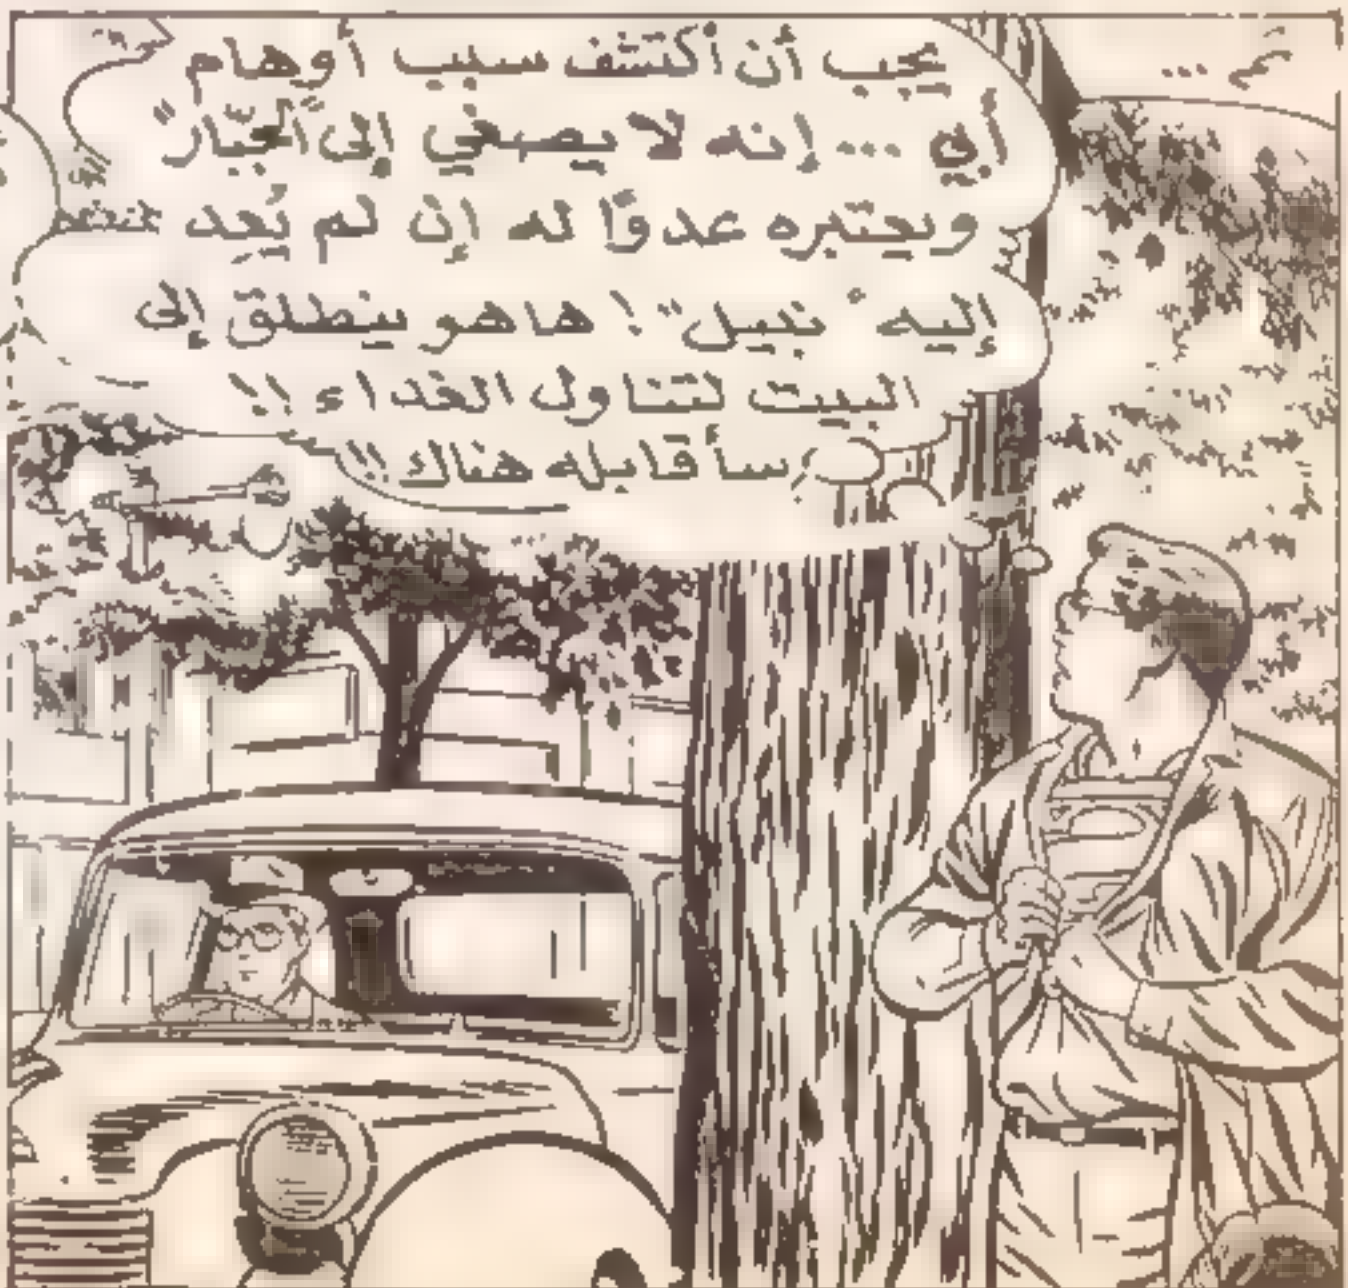 يجب أن أكتشف سبب أوهام
أبي ... إنه لا يصغي إلى "الجبّار"
ويعتبره عدوًا له إن لم يُعِد
إليه "نبيل" ! هاهو ينطلق إلى
البيت لتناول الغداء !!
سأقابله هناك !!